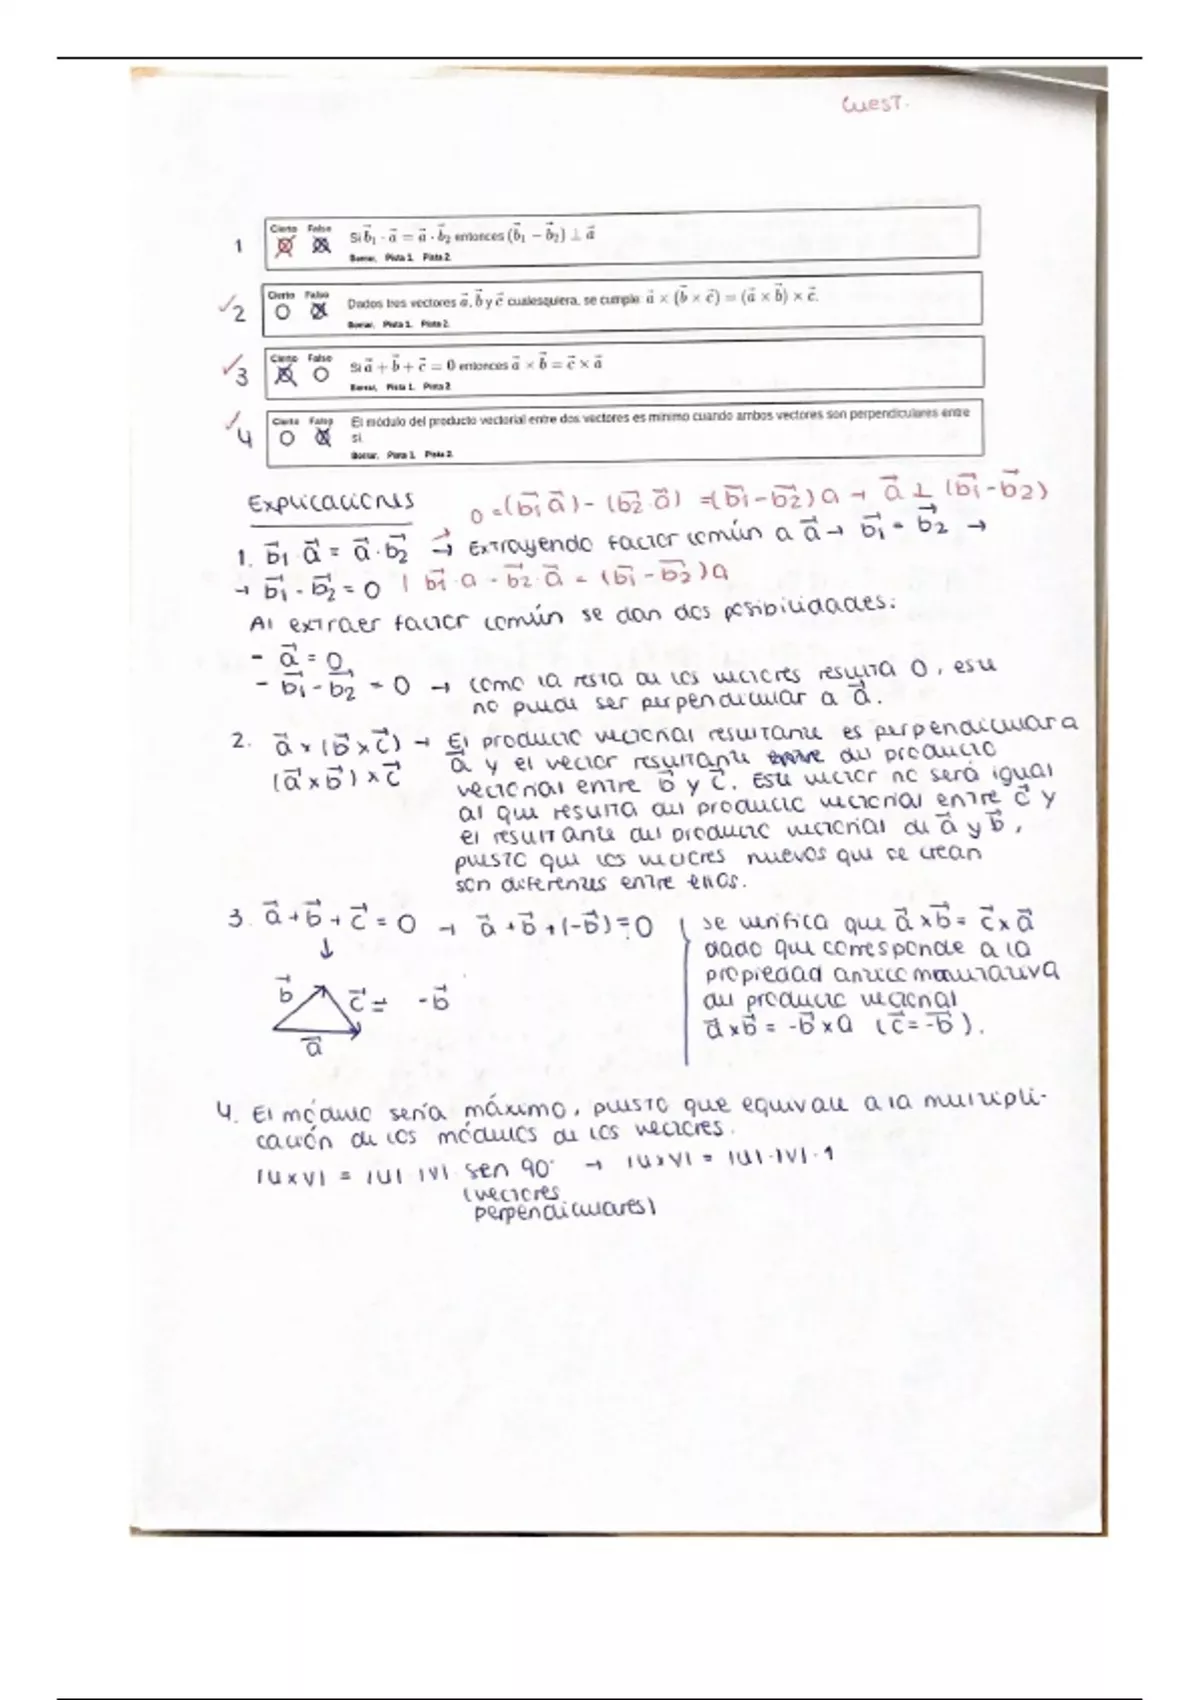 CUEST.
1 Cierto Falso Si b⃗₁ · a⃗ = a⃗ · b⃗₂ entonces (b⃗₁ − b⃗₂) ⊥ a⃗
Borrar. Pista 1. Pista 2.
✓2 Cierto Falso Dados tres vectores a⃗, b⃗ y c⃗ cualesquiera, se cumple a⃗ × (b⃗ × c⃗) = (a⃗ × b⃗) × c⃗.
Borrar. Pista 1. Pista 2.
✓3 Cierto Falso Si a⃗ + b⃗ + c⃗ = 0 entonces a⃗ × b⃗ = c⃗ × a⃗
Borrar. Pista 1. Pista 2.
✓4 Cierto Falso El módulo del producto vectorial entre dos vectores es mínimo cuando ambos vectores son perpendiculares entre
si.
Borrar. Pista 1. Pista 2.
Explicaciones
0 = (b⃗₁ a⃗) - (b⃗₂ · a⃗) = (b⃗₁ - b⃗₂) a → a⃗ ⊥ (b⃗₁ - b⃗₂)
1. b⃗₁ · a⃗ = a⃗ · b⃗₂ → Extrayendo factor común a a⃗ → b⃗₁ = b⃗₂ →
→ b⃗₁ - b⃗₂ = 0 | b⃗₁ · a - b⃗₂ · a⃗ = (b⃗₁ - b⃗₂) a
Al extraer factor común se dan dos posibilidades:
- a⃗ = 0
- b⃗₁ - b⃗₂ = 0 → como la resta de los vectores resulta 0, este
no puede ser perpendicular a a⃗.
2. a⃗ × (b⃗ × c⃗) → El producto vectorial resultante es perpendicular a
(a⃗ × b⃗) × c⃗ a⃗ y el vector resultante del producto
vectorial entre b⃗ y c⃗. Este vector no será igual
al que resulta del producto vectorial entre c⃗ y
el resultante del producto vectorial de a⃗ y b⃗,
puesto que los vectores nuevos que se crean
son diferentes entre ellos.
3. a⃗ + b⃗ + c⃗ = 0 → a⃗ + b⃗ + (-b⃗) = 0
↓
b⃗ c⃗ = -b⃗
a⃗
se verifica que a⃗ × b⃗ = c⃗ × a⃗
dado que corresponde a la
propiedad anticonmutativa
del producto vectorial
a⃗ × b⃗ = -b⃗ × a (c⃗ = -b⃗).
4. El módulo sería máximo, puesto que equivale a la multipli-
cación de los módulos de los vectores.
|u × v| = |u| · |v| · sen 90° → |u × v| = |u| · |v| · 1
(vectores
perpendiculares)